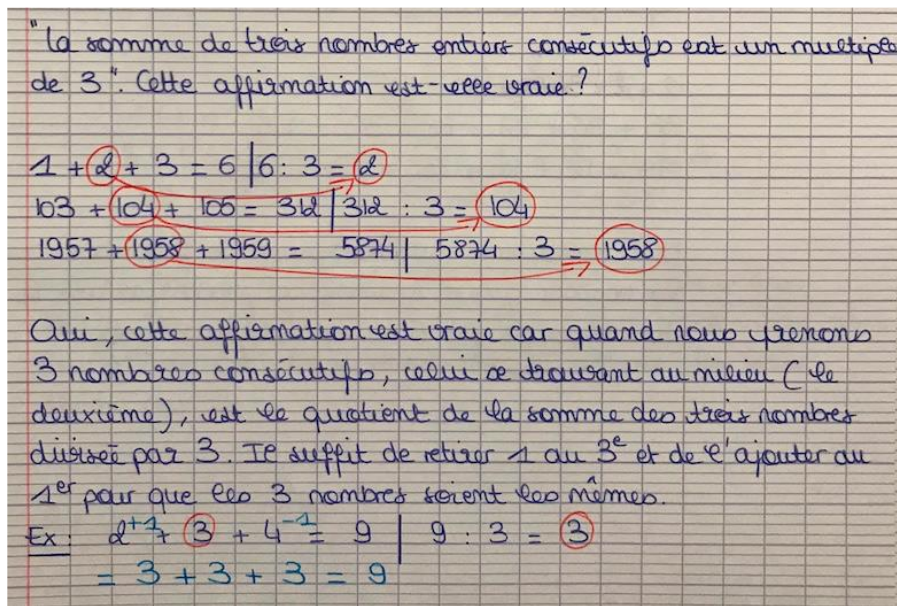 "La somme de trois nombres entiers consécutifs est un multiple
de 3". Cette affirmation est-elle vraie?
1 + 2 + 3 = 6 | 6 : 3 = 2
103 + 104 + 105 = 312 | 312 : 3 = 104
1957 + 1958 + 1959 = 5874 | 5874 : 3 = 1958
Oui, cette affirmation est vraie car quand nous prenons
3 nombres consécutifs, celui se trouvant au milieu (le
deuxième), est le quotient de la somme des trois nombres
divisée par 3. Il suffit de retirer 1 au 3e et de l'ajouter au
1er pour que les 3 nombres soient les mêmes.
Ex : 2+1 + 3 + 4-1 = 9 | 9 : 3 = 3
= 3 + 3 + 3 = 9